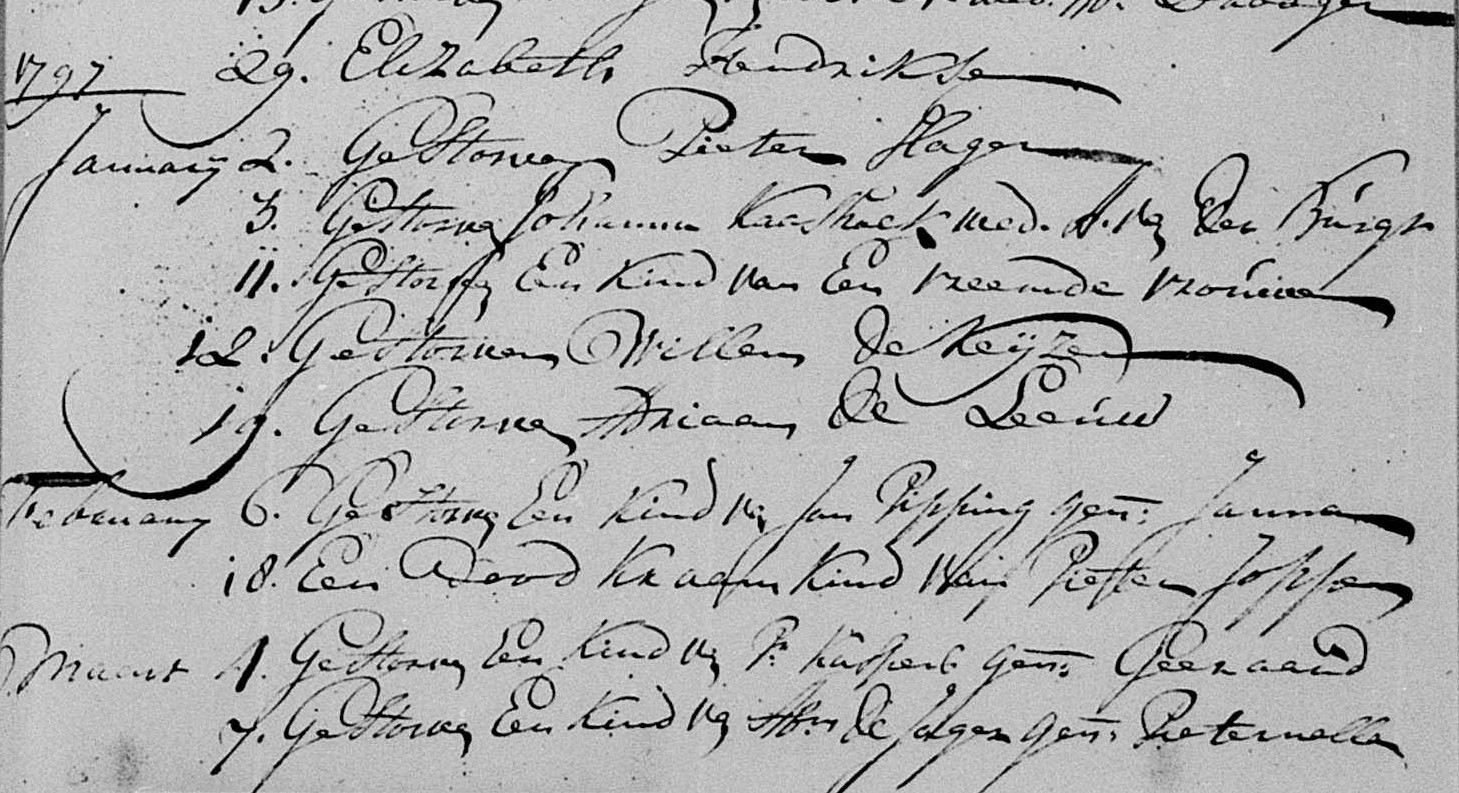 29. Elizabeth Hendrikse
1797
January 2. Gestorven Pieter Slager
3. Gestorve Johanna Kaashoek wed. A. vn den Burger
11. Gestorven Een Kind van Een vreemde vrouwe
12. Gestorven Willem de Keijzer
19. Gestorven Adriaan de Leeuw
February 6. Gestorve Een Kind vn Jan Pipping gen: Janna
18. Een Dood Kraam Kind Van Pieter Joppen
Maart 1. Gestorven Een Kind vn Pr Kuspert gen: Geeraard
7. Gestorve Een Kind vn Abm de Jager gen: Pieternella